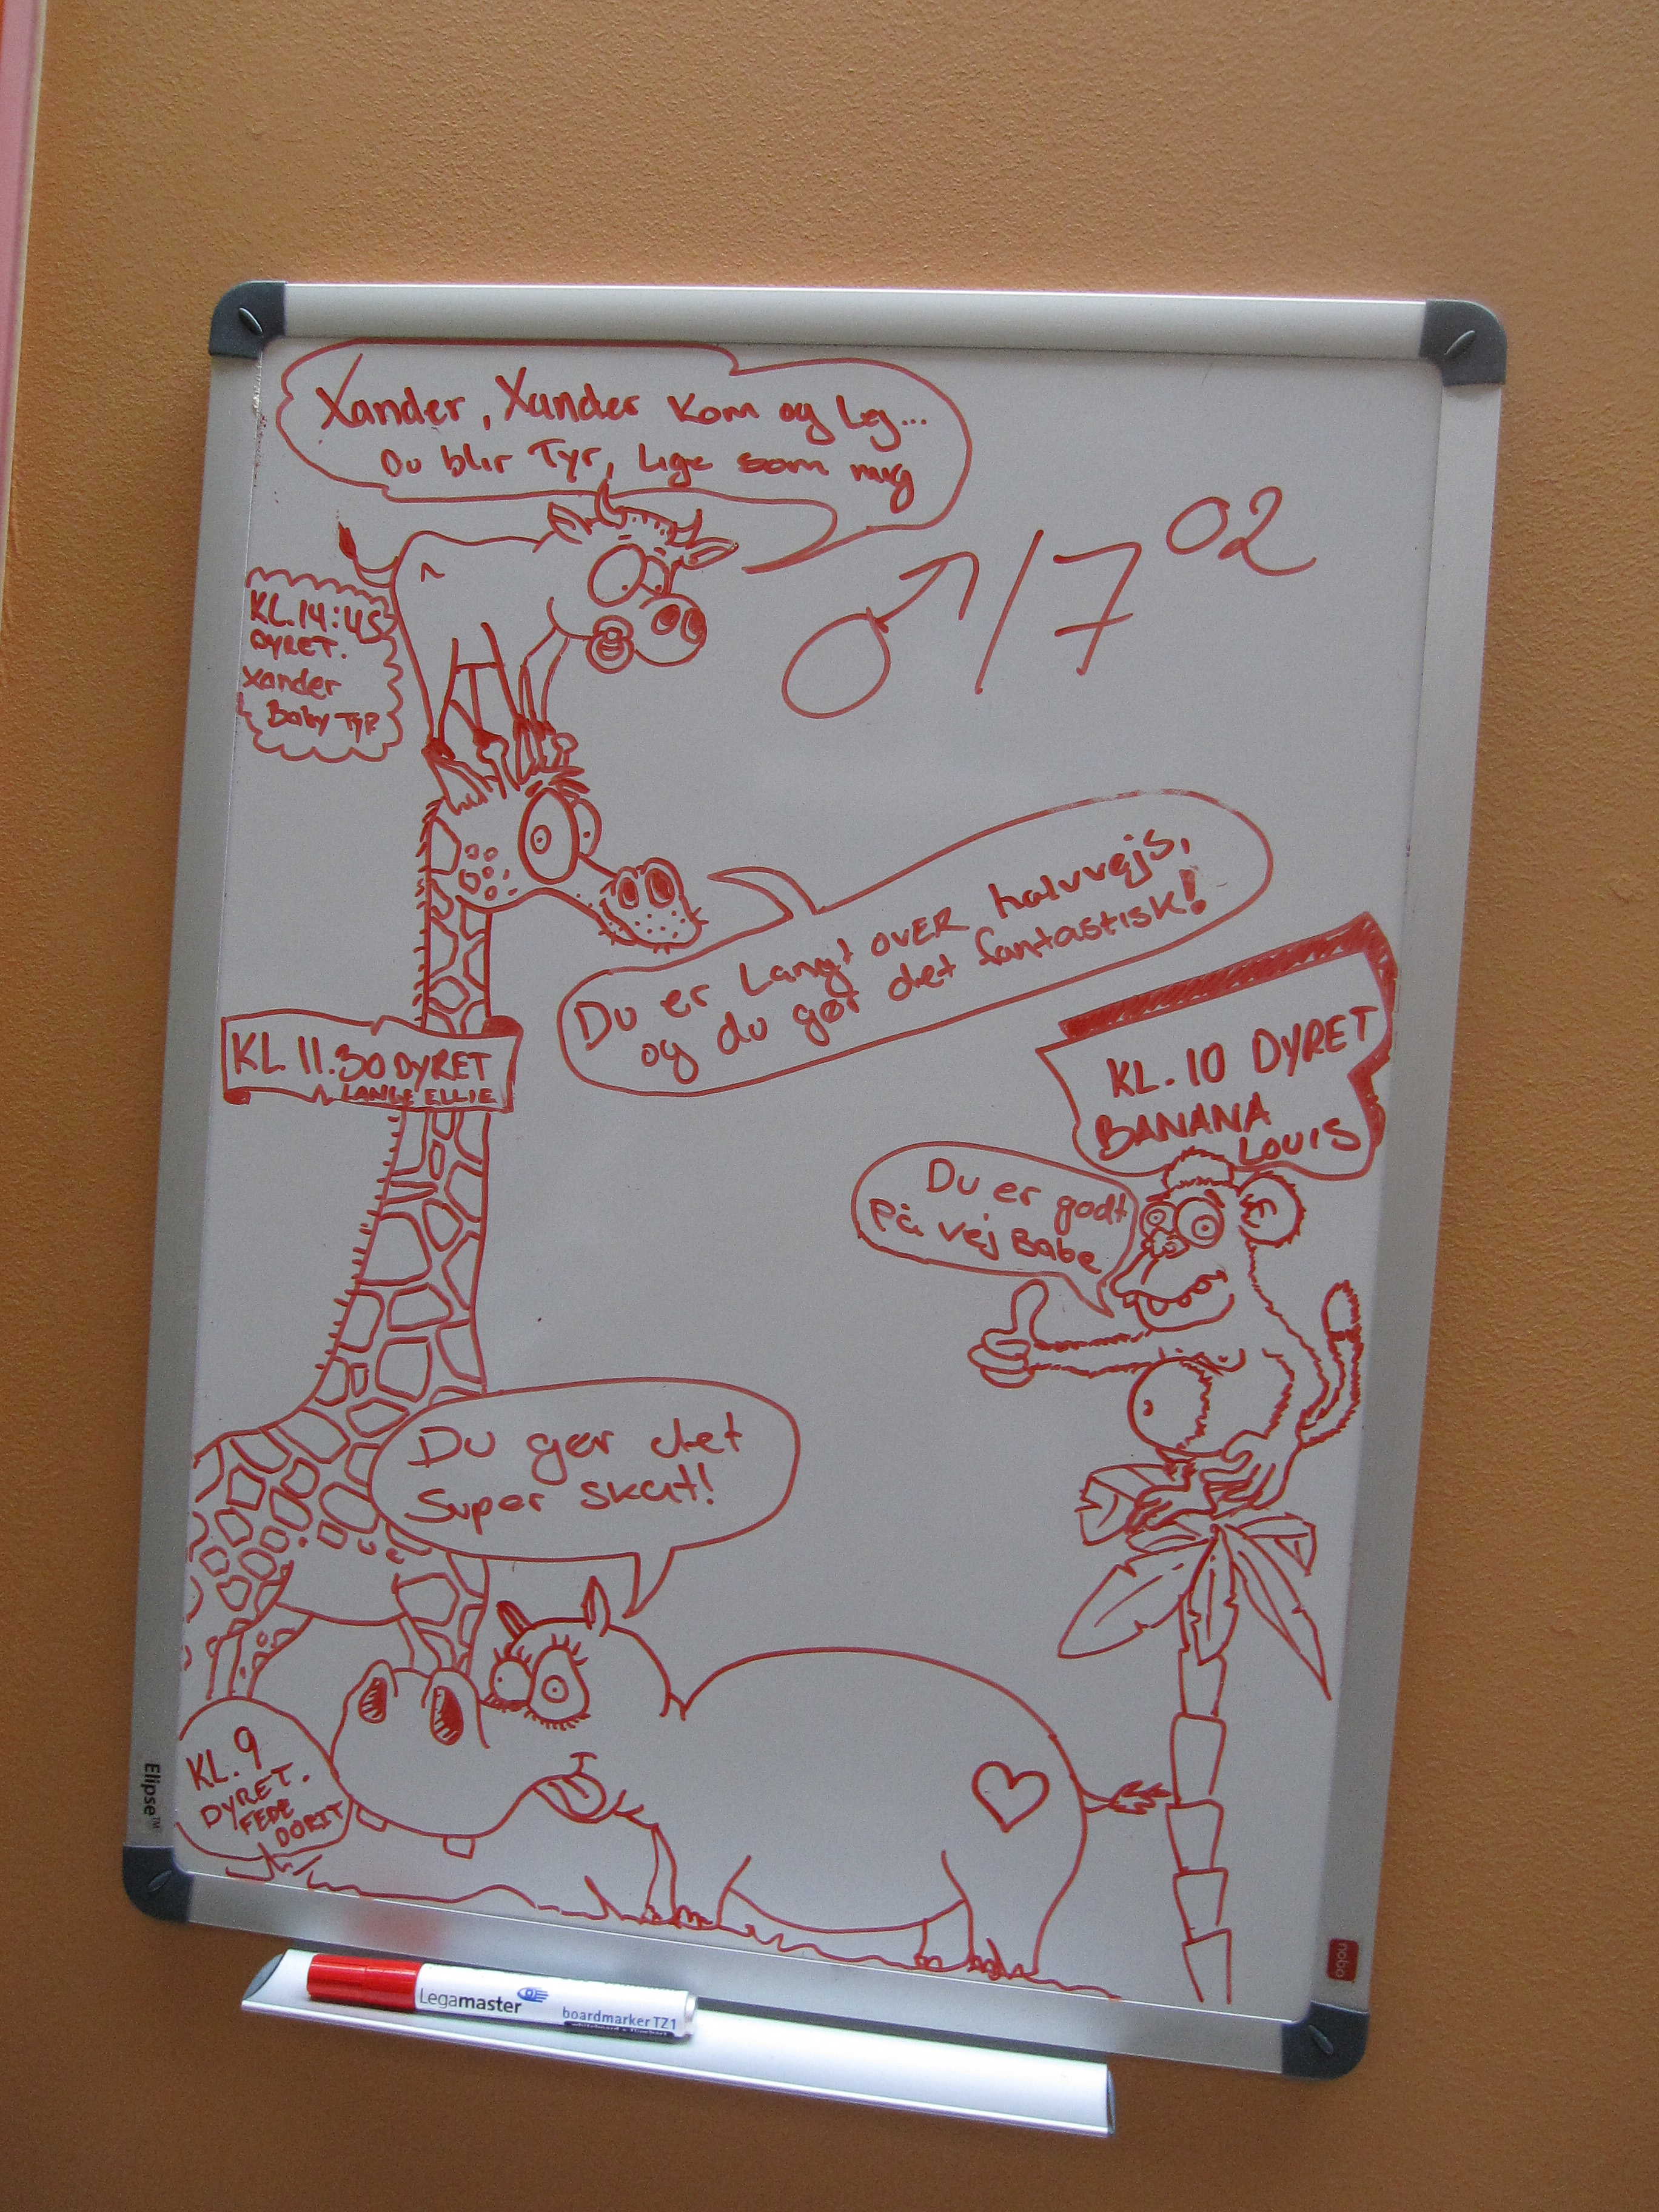 Xander, Xander kom og Leg...
Du blir Tyr, lige som mig
KL. 14:45
DYRET.
Xander
Baby TYR
♂/7 02
Du er Langt OVER halvvejs,
og du gør det fantastisk!
KL. 11.30 DYRET
LANGE ELLIE
KL. 10 DYRET
BANANA
LOUIS
Du er godt
På vej Babe
Du gør det
Super skat!
KL. 9
DYRET.
FEDE
DORIT
Elipse™
nobo
Legamaster
boardmarker TZ1